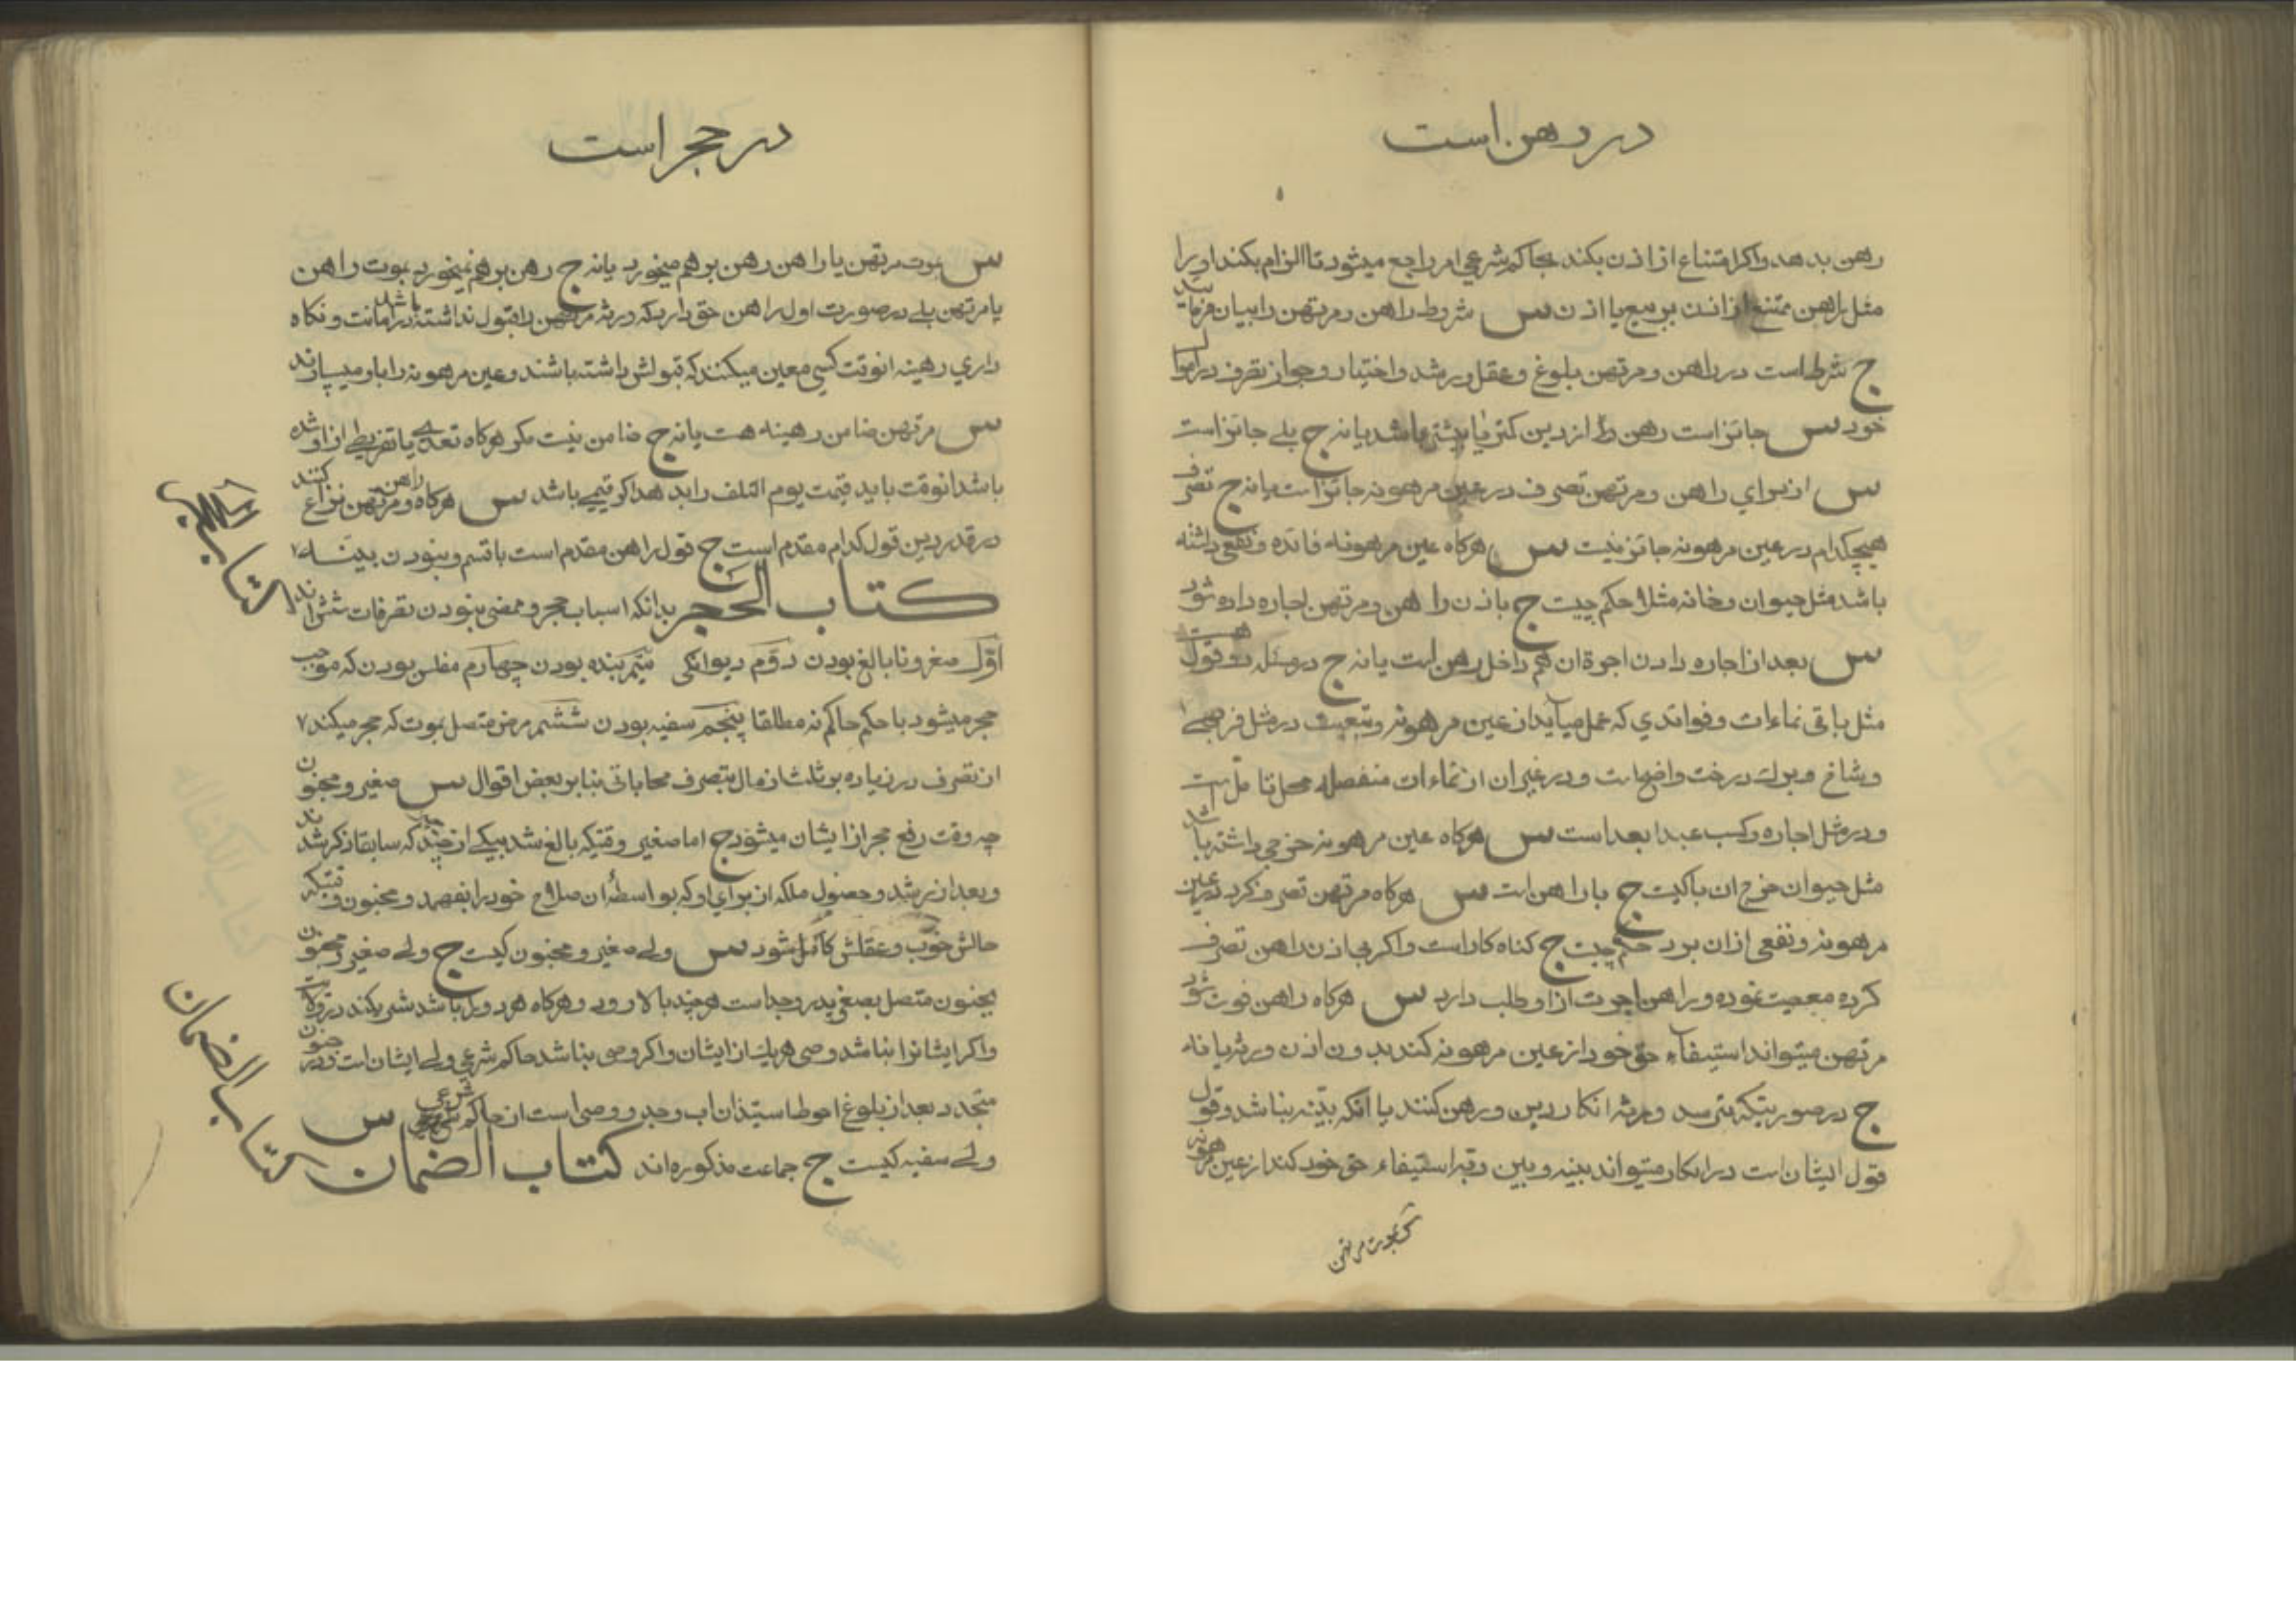 در رهن است
رهن بدهد واکر امتناع از اذن بکند بحاکم شرعی امر راجع میشود تا الزام بکند او را
مثل راهن ممتنع از اذن بر بیع یا اذن س شروط راهن و مرتهن را بیان فرمائید
ج شرط است در راهن و مرتهن بلوغ و عقل و رشد و اختیار و جواز تصرف در اموال
خود س جایز است رهن از دین کمتر یا بیشتر باشد یا نه ج بلی جایز است
س از برای راهن و مرتهن تصرف در عین مرهونه جایز است یا نه ج تصرف
هیچکدام در عین مرهونه جایز نیست س هرکاه عین مرهونه فائده و نفعی داشته
باشد مثل حیوان و خانه مثلا حکم چیست ج باذن راهن و مرتهن اجاره داده شود
س بعد از اجاره دادن اجرة ان هم داخل رهن است یا نه ج در مسئله دو قول هست
مثل باقی نماءات و فوائدی که بعمل میآید از عین مرهونه و تبعیت در مثل فربهی
و شاخ و برك درخت واضح است و در غیر ان از نماءات منفصله محل تامل است
و در مثل اجاره و کسب عبد ابعد است س هرکاه عین مرهونه خرجی داشته باشد
مثل حیوان خرج ان با کیست ج با راهن است س هرکاه مرتهن تصرف کرد در عین
مرهونه و نفعی از ان برد حکم چیست ج کناه کار است واکر بی اذن راهن تصرف
کرده معصیت نموده و راهن اجرت از او طلب دارد س هرکاه راهن فوت شود
مرتهن میتواند استیفاء حق خود از عین مرهونه کند بدون اذن ورثه یا نه
ج در صورتیکه بترسد ورثه انکار دین و رهن کنند با انکه بیّنه نباشد وقول
قول ایشان است در انکار میتواند بینه وبین ربّه استیفاء حق خود کند از عین مرهونه
س بموت مرتهن
در حجر است
س بموت مرتهن یا راهن رهن بر هم میخورد یا نه ج رهن بر هم نمیخورد بموت راهن
یا مرتهن بلی در صورت اول راهن حق دارد که ورثه مرتهن را قبول نداشته باشد در امانت و نکاه
داری رهینه انوقت کسی معین میکنند که قبولش داشته باشند و عین مرهونه را باو میسپارند
س مرتهن ضامن رهینه هست یا نه ج ضامن نیست مکر هرکاه تعدی یا تفریطی از او شده
باشد انوقت باید قیمت یوم التلف را بدهد اکر قیمی باشد س هرکاه راهن و مرتهن نزاع کنند
در قدر دین قول کدام مقدم است ج قول راهن مقدم است با قسم و نبودن بینه
کتاب الحجر بدانکه اسباب حجر و ممضی نبودن تصرفات شش اند
اوّل صغر و نابالغ بودن دوّم دیوانکی سیّم بنده بودن چهارم مفلس بودن که موجب
حجر میشود با حکم حاکم نه مطلقا پنجم سفیه بودن ششم مرض متصل بموت که حجر میکند
از تصرف در زیاده بر ثلث از مال بتصرف محاباتی بنا بر بعض اقوال س صغیر و مجنون
چه وقت رفع حجر از ایشان میشود ج اما صغیر وقتیکه بالغ شد بیکی از چیزهائیکه سابقا ذکر شدند
و بعد از رشد و حصول ملکه از برای او که بواسطه ان صلاح خود را بفهمد و مجنون وقتیکه
حالش خوب و عقلش کامل شود س ولی صغیر و مجنون کیست ج ولی صغیر و مجنون
بجنون متصل بصغر پدر و جد است هرچند بالا رود و هرکاه هر دو باشند شریکند در ولایت
واکر ایشان نباشند وصی هریك از ایشان واکر وصی نباشد حاکم شرعی ولی ایشان است و در جنون
متجدد بعد از بلوغ احوط استیذان اب وجد و وصی است از حاکم شرعی س
ولی سفیه کیست ج جماعت مذکوره اند کتاب الضمان
کتاب الحجر
کتاب الضمان